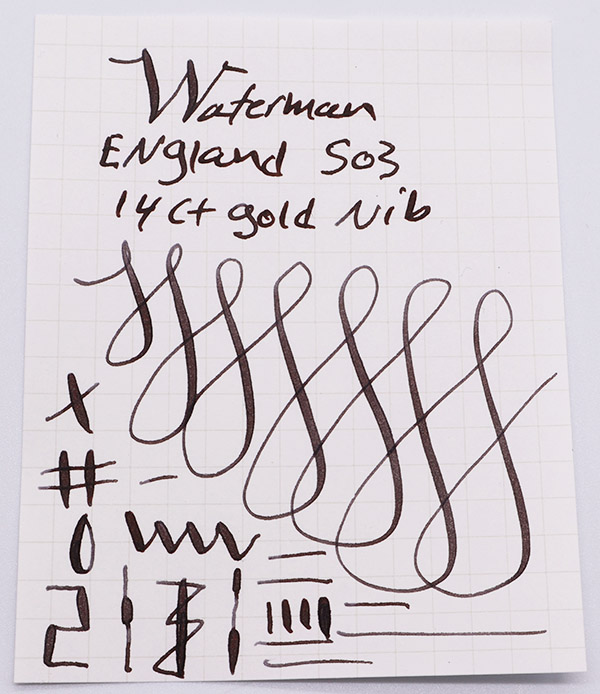 Waterman
ENgland 503
14 Ct gold Nib
x
#
0
2